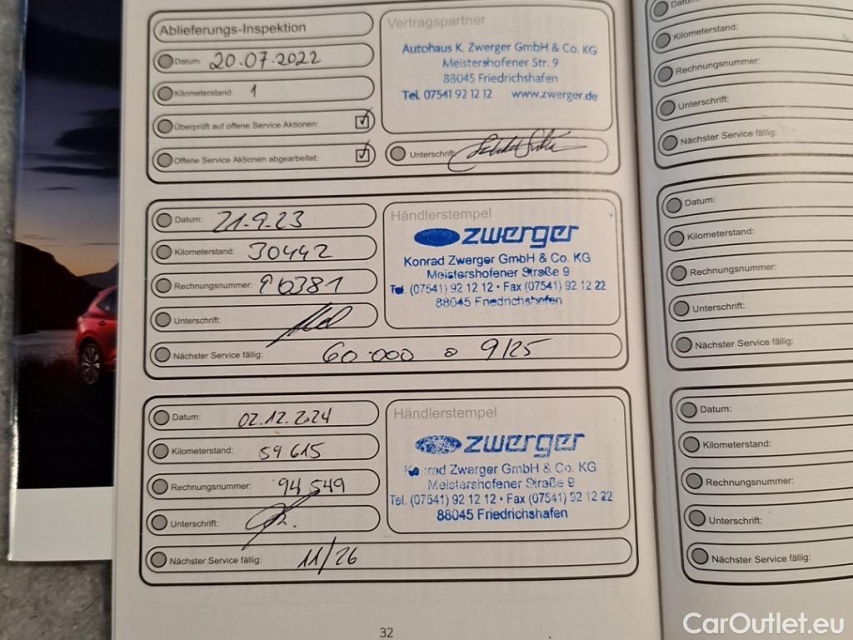 Ablieferungs-Inspektion
Datum: 20.07.2022
Kilometerstand: 1
Überprüft auf offene Service Aktionen:
Offene Service Aktionen abgearbeitet:
Vertragspartner
Autohaus K. Zwerger GmbH & Co. KG
Meistershofener Str. 9
88045 Friedrichshafen
Tel. 07541 92 12 12 www.zwerger.de
Unterschrift:
Datum: 21.9.23
Kilometerstand: 30442
Rechnungsnummer: 90381
Unterschrift:
Nächster Service fällig: 60.000 o 9/25
Händlerstempel
zwerger
Konrad Zwerger GmbH & Co. KG
Meistershofener Straße 9
Tel. (07541) 92 12 12 • Fax (07541) 92 12 22
88045 Friedrichshafen
Datum: 02.12.2024
Kilometerstand: 59 615
Rechnungsnummer: 94549
Unterschrift:
Nächster Service fällig: 11/26
Händlerstempel
zwerger
Konrad Zwerger GmbH & Co. KG
Meistershofener Straße 9
Tel. (07541) 92 12 12 • Fax (07541) 92 12 22
88045 Friedrichshafen
32
Datum:
Kilometerstand:
Rechnungsnummer:
Unterschrift:
Nächster Service fällig:
Datum:
Kilometerstand:
Rechnungsnummer:
Unterschrift:
Nächster Service fällig:
Datum:
Kilometerstand:
Rechnungsnummer:
Unterschrift:
Nächster Service fällig:
CarOutlet.eu